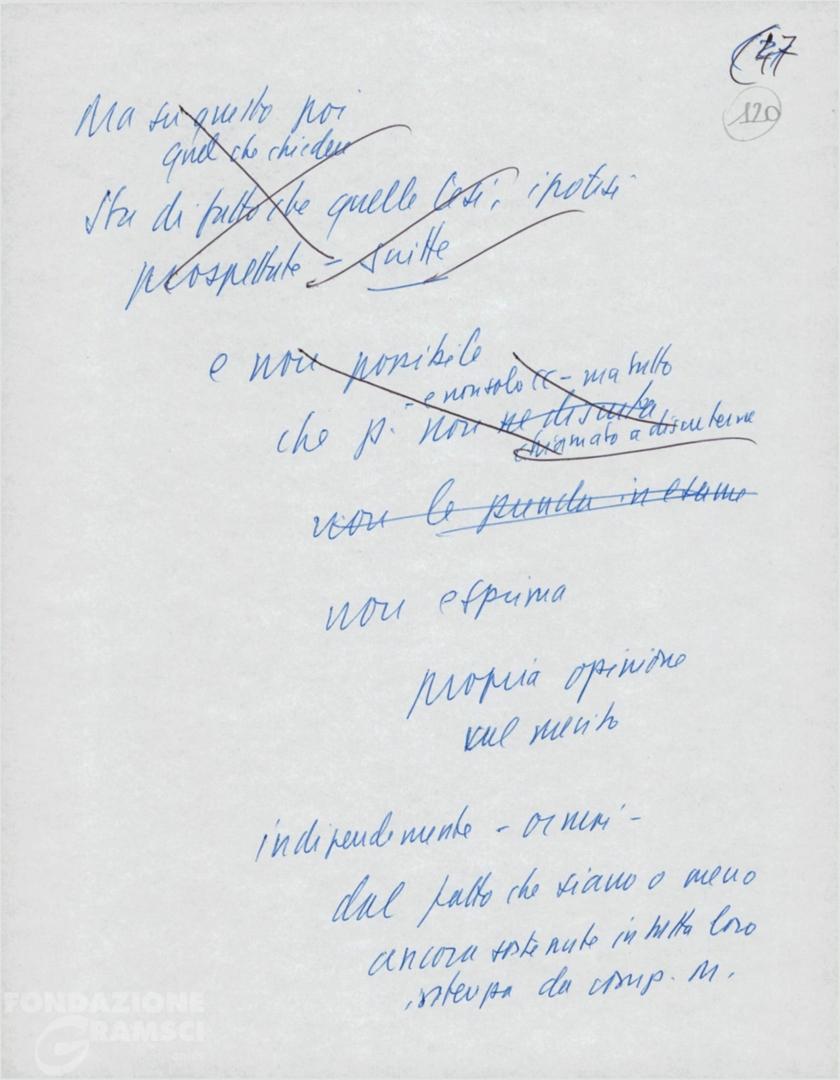 47
120
Ma su questo poi
quel che chiedere
Sta di fatto che quelle tesi, ipotesi
prospettate - scritte
e non possibile
- e non solo CC - ma tutto
che p. non ne discuta
chiamato a discuterne
non le prenda in esame
non esprima
propria opinione
sul merito
indipendemente - 
dal fatto che siano o meno
ancora sostenute in tutta loro
da comp. M.
FONDAZIONE
GRAMSCI